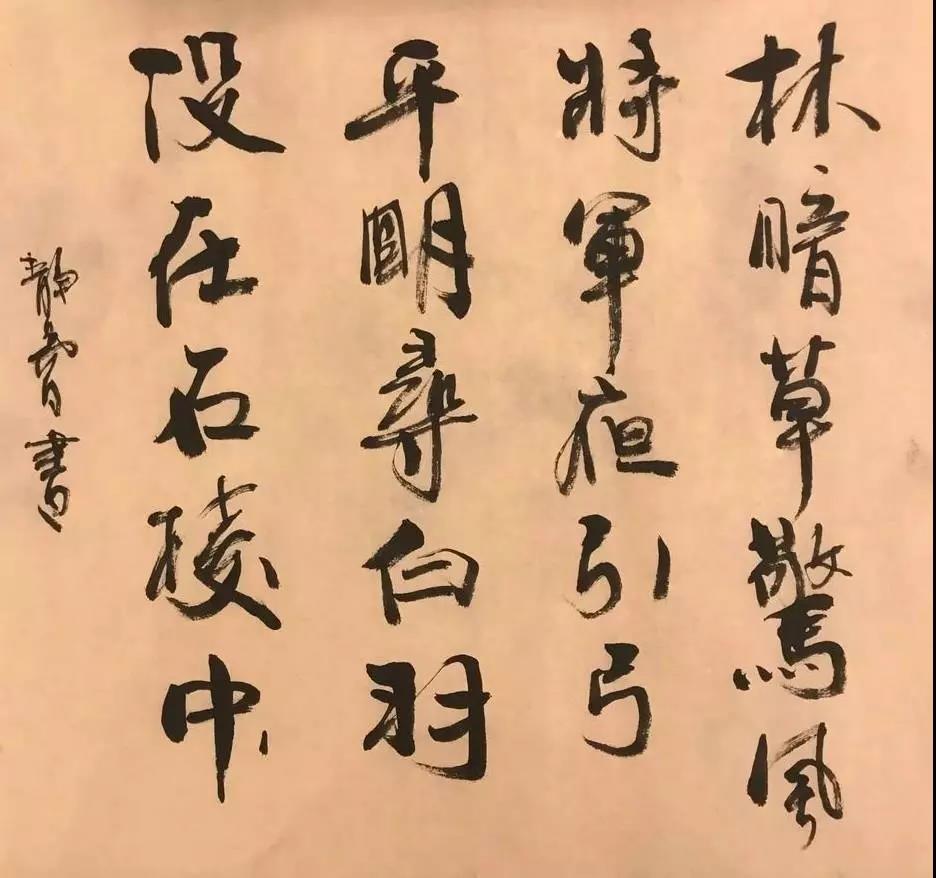 林暗草驚風
將軍夜引弓
平明尋白羽
沒在石稜中
書